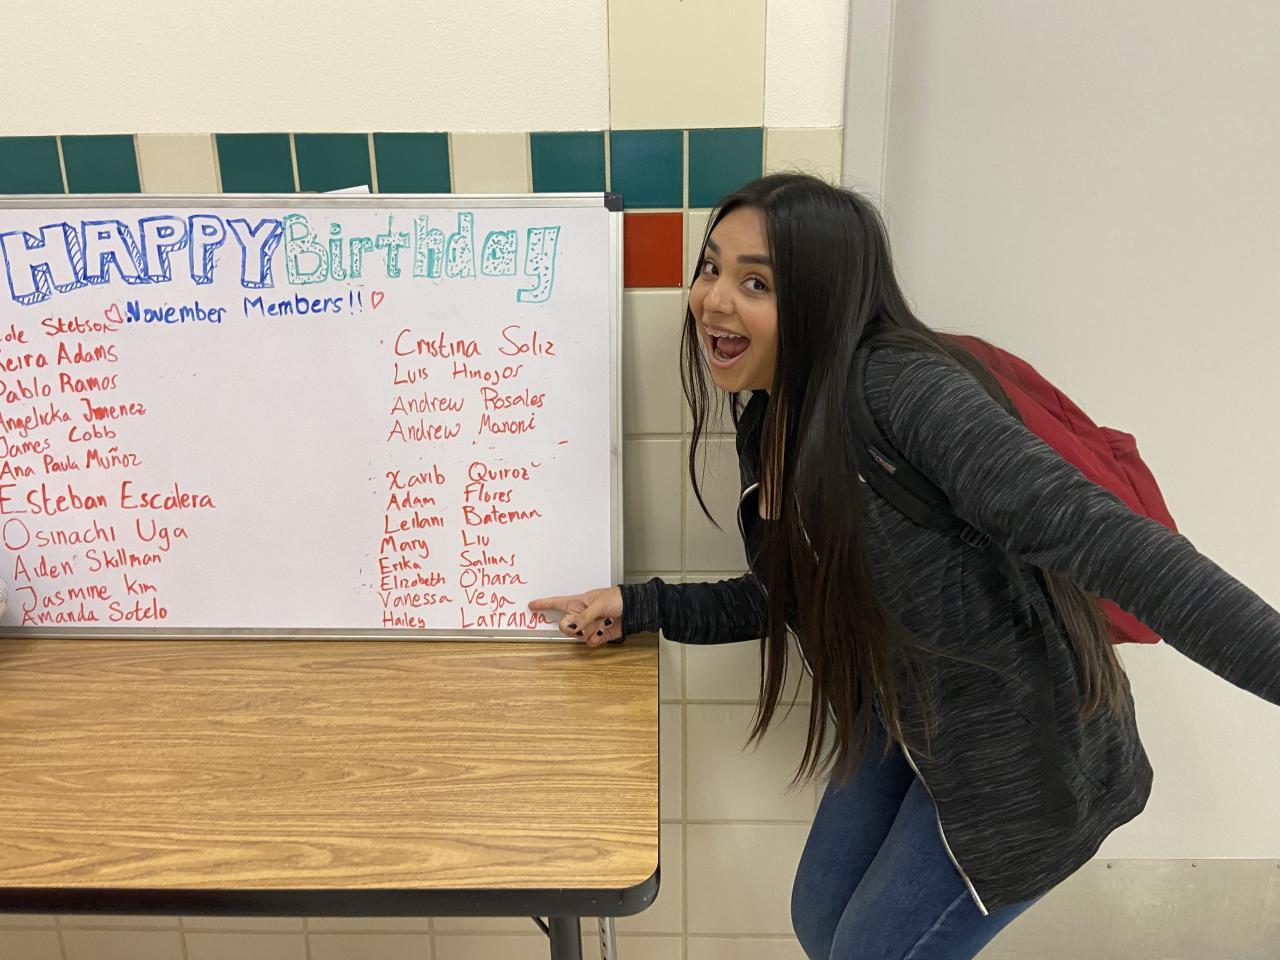 HAPPY Birthday
November Members!!
Stetson
Keira Adams
Pablo Ramos
Angelicka Jimenez
James Cobb
Ana Paula Muñoz
Esteban Escalera
Osinachi Uga
Aiden Skillman
Jasmine Kim
Amanda Sotelo
Cristina Soliz
Luis Hinojos
Andrew Rosales
Andrew Manoni
Xavib Quiroz
Adam Flores
Leilani Bateman
Mary Liu
Erika Salinas
Elizabeth O'hara
Vanessa Vega
Hailey Larranga